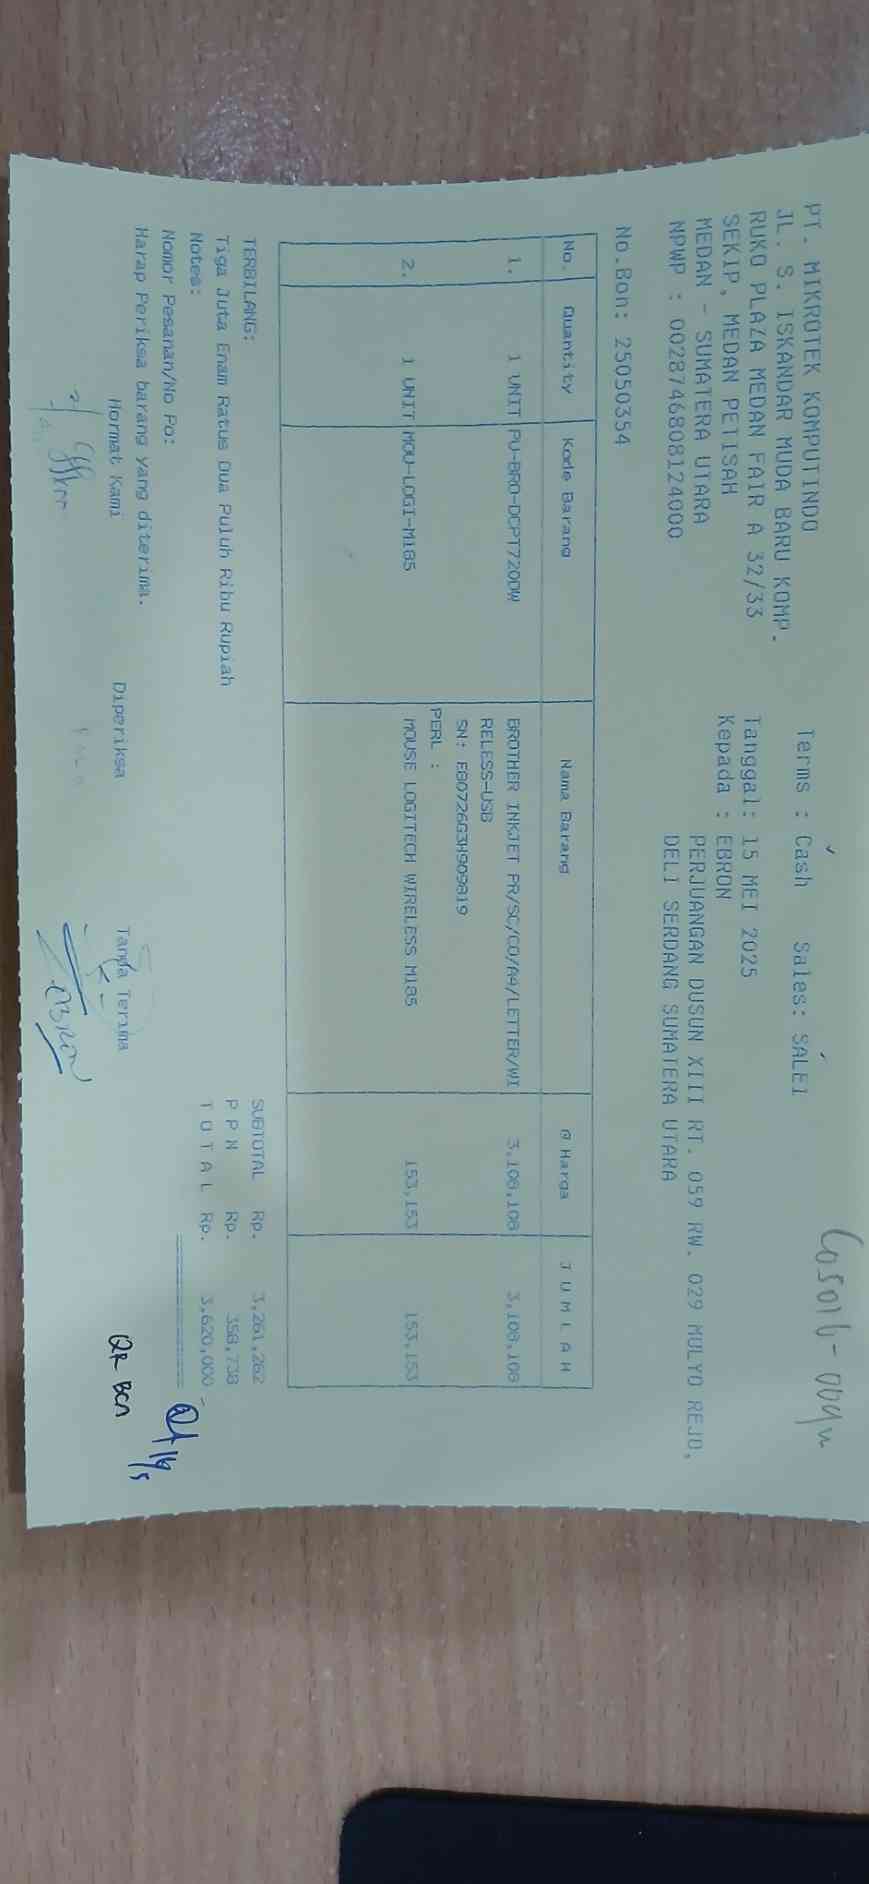 PT. MIKROTEK KOMPUTINDO
JL. S. ISKANDAR MUDA BARU KOMP.
RUKO PLAZA MEDAN FAIR A 32/33
SEKIP, MEDAN PETISAH
MEDAN - SUMATERA UTARA
NPWP : 0028746808124000
Terms : Cash Sales: SALE1
Tanggal: 15 MEI 2025
Kepada : EBRON
PERJUANGAN DUSUN XIII RT. 059 RW. 029 MULYO REJO,
DELI SERDANG SUMATERA UTARA
No.Bon: 25050354
No. Quantity Kode Barang Nama Barang @ Harga J U M L A H
1. 1 UNIT PU-BRO-DCPT720DW BROTHER INKJET PR/SC/CO/A4/LETTER/WI 3,108,108 3,108,108
RELESS-USB
SN: E80726G3H909819
PERL :
2. 1 UNIT MOU-LOGI-M185 MOUSE LOGITECH WIRELESS M185 153,153 153,153
TERBILANG:
Tiga Juta Enam Ratus Dua Puluh Ribu Rupiah
Notes:
Nomor Pesanan/No Po:
Harap Periksa barang yang diterima.
SUBTOTAL Rp. 3,261,262
P P N Rp. 358,738
T O T A L Rp. 3,620,000
Hormat Kami Diperiksa Tanda Terima
EBRON
QR BCA